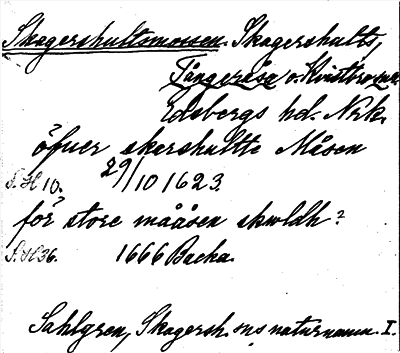 Skagershultsmossen. Skagershults,
Tångeråsa o. Kvistbro snr.
Edsbergs hd. Nrk.
öfuer skershultte Måsen
S.H 10. 29/10 1623.
för store mååsen skwldh?
S.H 36. 1666 Backa.
Sahlgren, Skagersh. sns naturnamn. I.